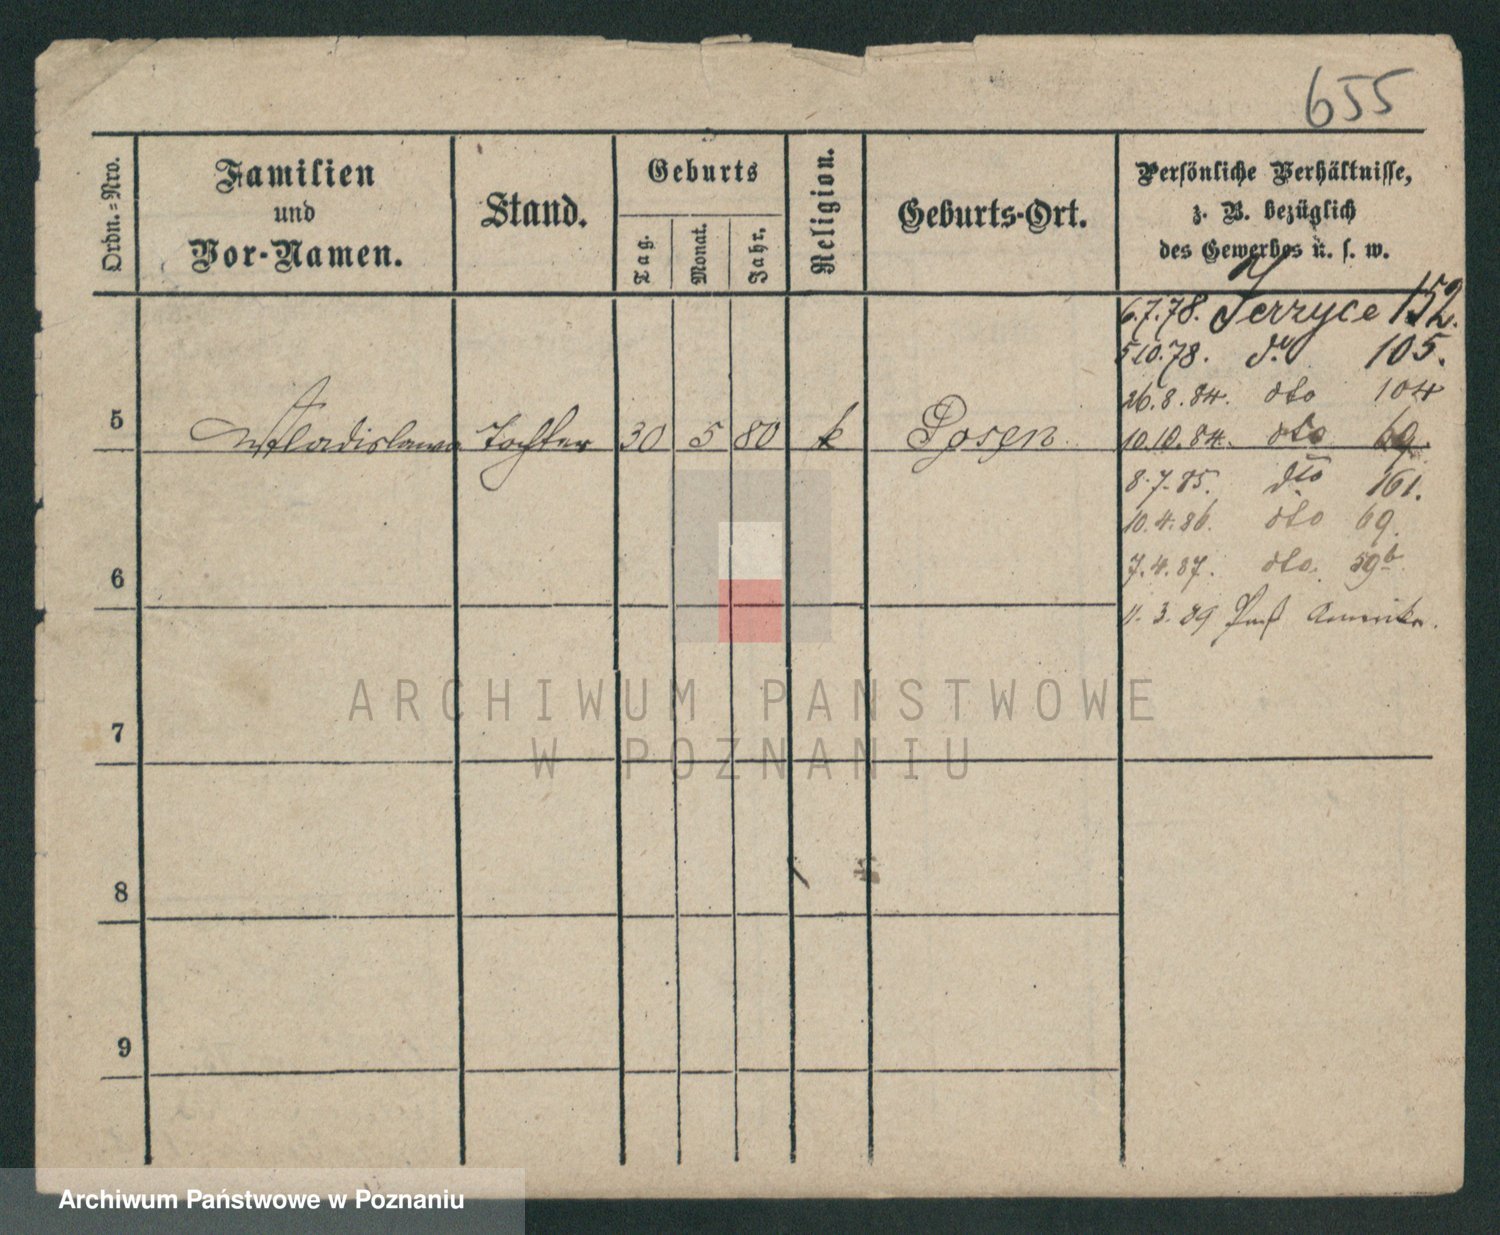 655
Ordn.=Nro.
Familien
und
Vor-Namen.
Stand.
Geburts
Tag.
Monat.
Jahr.
Religion.
Geburts-Ort.
Persönliche Verhältnisse,
z. B. bezüglich
des Gewerbes u. s. w.
6.7.78. Jerzyce 152.
5.10.78. do 105.
26.8.84. dto 104
5 Wladislawa Tochter 30 5 80 k Posen
10.10.84. dto 69.
8.7.85. dto 161.
10.4.86. dto 69.
6
7.4.87. dto. 59b
11.3.89 Amerika.
7
8
9
ARCHIWUM PANSTWOWE
W POZNANIU
Archiwum Państwowe w Poznaniu